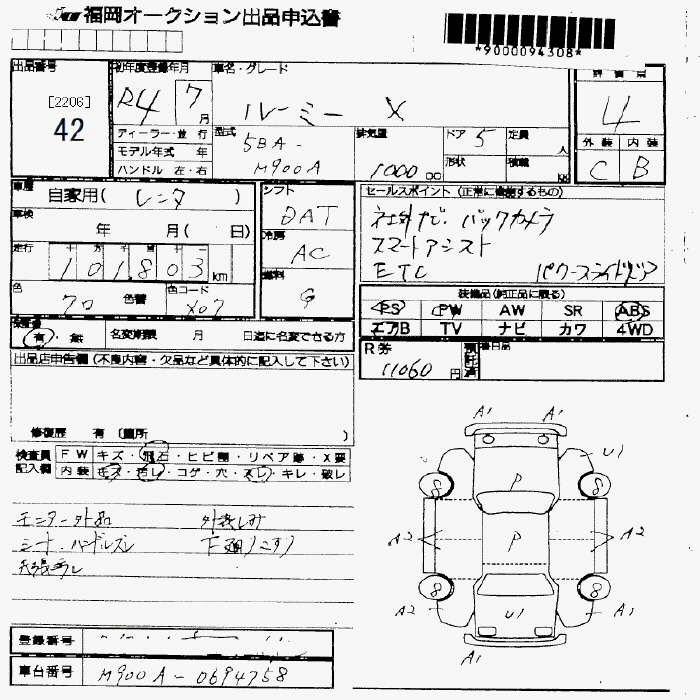 福岡オークション出品申込書
*9000094308*
出品番号
[2206]
42
初年度登録年月
R4 7月
車名・グレード
ルーミー X
評価点
4
ディーラー・並行
モデル年式 年
ハンドル 左・右
型式
5BA-
M900A
排気量
1000 cc
ドア 5
形状
定員 人
積載 kg
外装 内装
C B
車歴
自家用(レンタ)
車検
年 月(日)
走行
十万千百十一
101,803 km
色
クロ
色替
色コード
X07
シフト
DAT
冷房
AC
燃料
G
セールスポイント(正常に装備するもの)
社外ナビ、バックカメラ
スマートアシスト
ETC パワースライドドア
装備品(純正品に限る)
PS PW AW SR ABS
エアB TV ナビ カワ 4WD
保証書
有・無
名変期限 月 日迄に名変できる方
R券
11060 円
預託済
出品店申告欄(不良内容・欠品など具体的に記入して下さい)
修復歴 有(箇所 )
検査員
記入欄
FW キズ・飛石・ヒビ割・リペア跡・X要
内装 キズ・汚レ・コゲ・穴・スレ・キレ・破レ
モニター外品 外装しみ
シート・ハンドルスレ 下廻りこすり
登録番号
車台番号
M900A-0694758
A1 A1
U1
8 P 8
A2 P A2
8 8
A2 U1 A1
A1